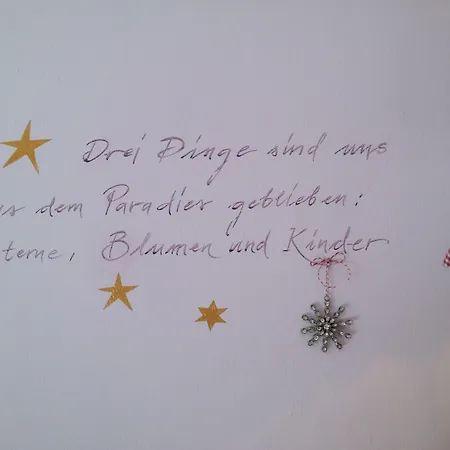 Drei Dinge sind uns
us dem Paradies geblieben:
terne, Blumen und Kinder